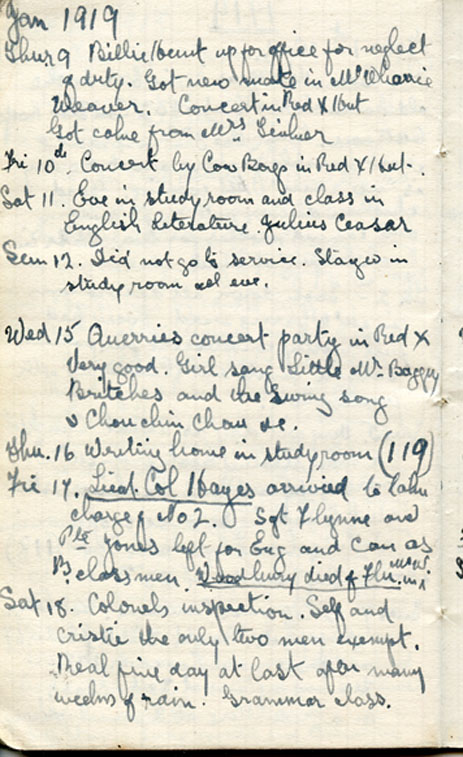 Jan 1919
Thur 9 Billie/bent up for office for neglect
of duty. Got new mate in McWharrie
Weaver. Concert in Red X/hut
Got cake from Mrs
Fri 10th. Concert by Cow Boys in Red X/hut.
Sat 11. Eve in study room and class in
English Literature. Julius Ceasar
Sun 12. Did not go to service. Stayed in
study room all eve.
Wed 15 Querries concert party in Red X
Very good. Girl sang Little Mr Baggy
Britches and the Swing song
v Chouchin Chow &c.
Thu. 16 Writing home in study room (119)
Fri 17. Lieut. Col Hayes arrived to take
charge of No 2. Sgt Flynne and
Pte Jones left for Eng and Can as
B. class men. died of Flu.
Sat 18. Colonels inspection. Self and
Cristie the only two men exempt.
Real fine day at last after many
weeks of rain. Grammar class.